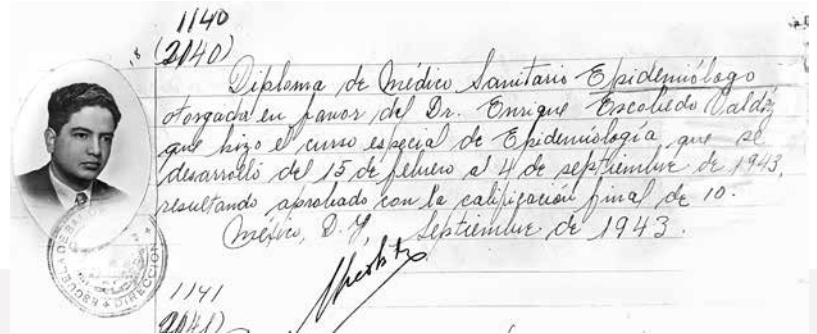 1140
(2140)
Diploma de Médico Sanitario Epidemiólogo
otorgado en favor del Dr. Enrique Escobedo Valdéz
que hizo el curso especial de Epidemiología que se
desarrolló del 15 de febrero al 4 de septiembre de 1943,
resultando aprobado con la calificación final de 10.
México, D. F., Septiembre de 1943.
ESCUELA DE
DIRECCION
1141